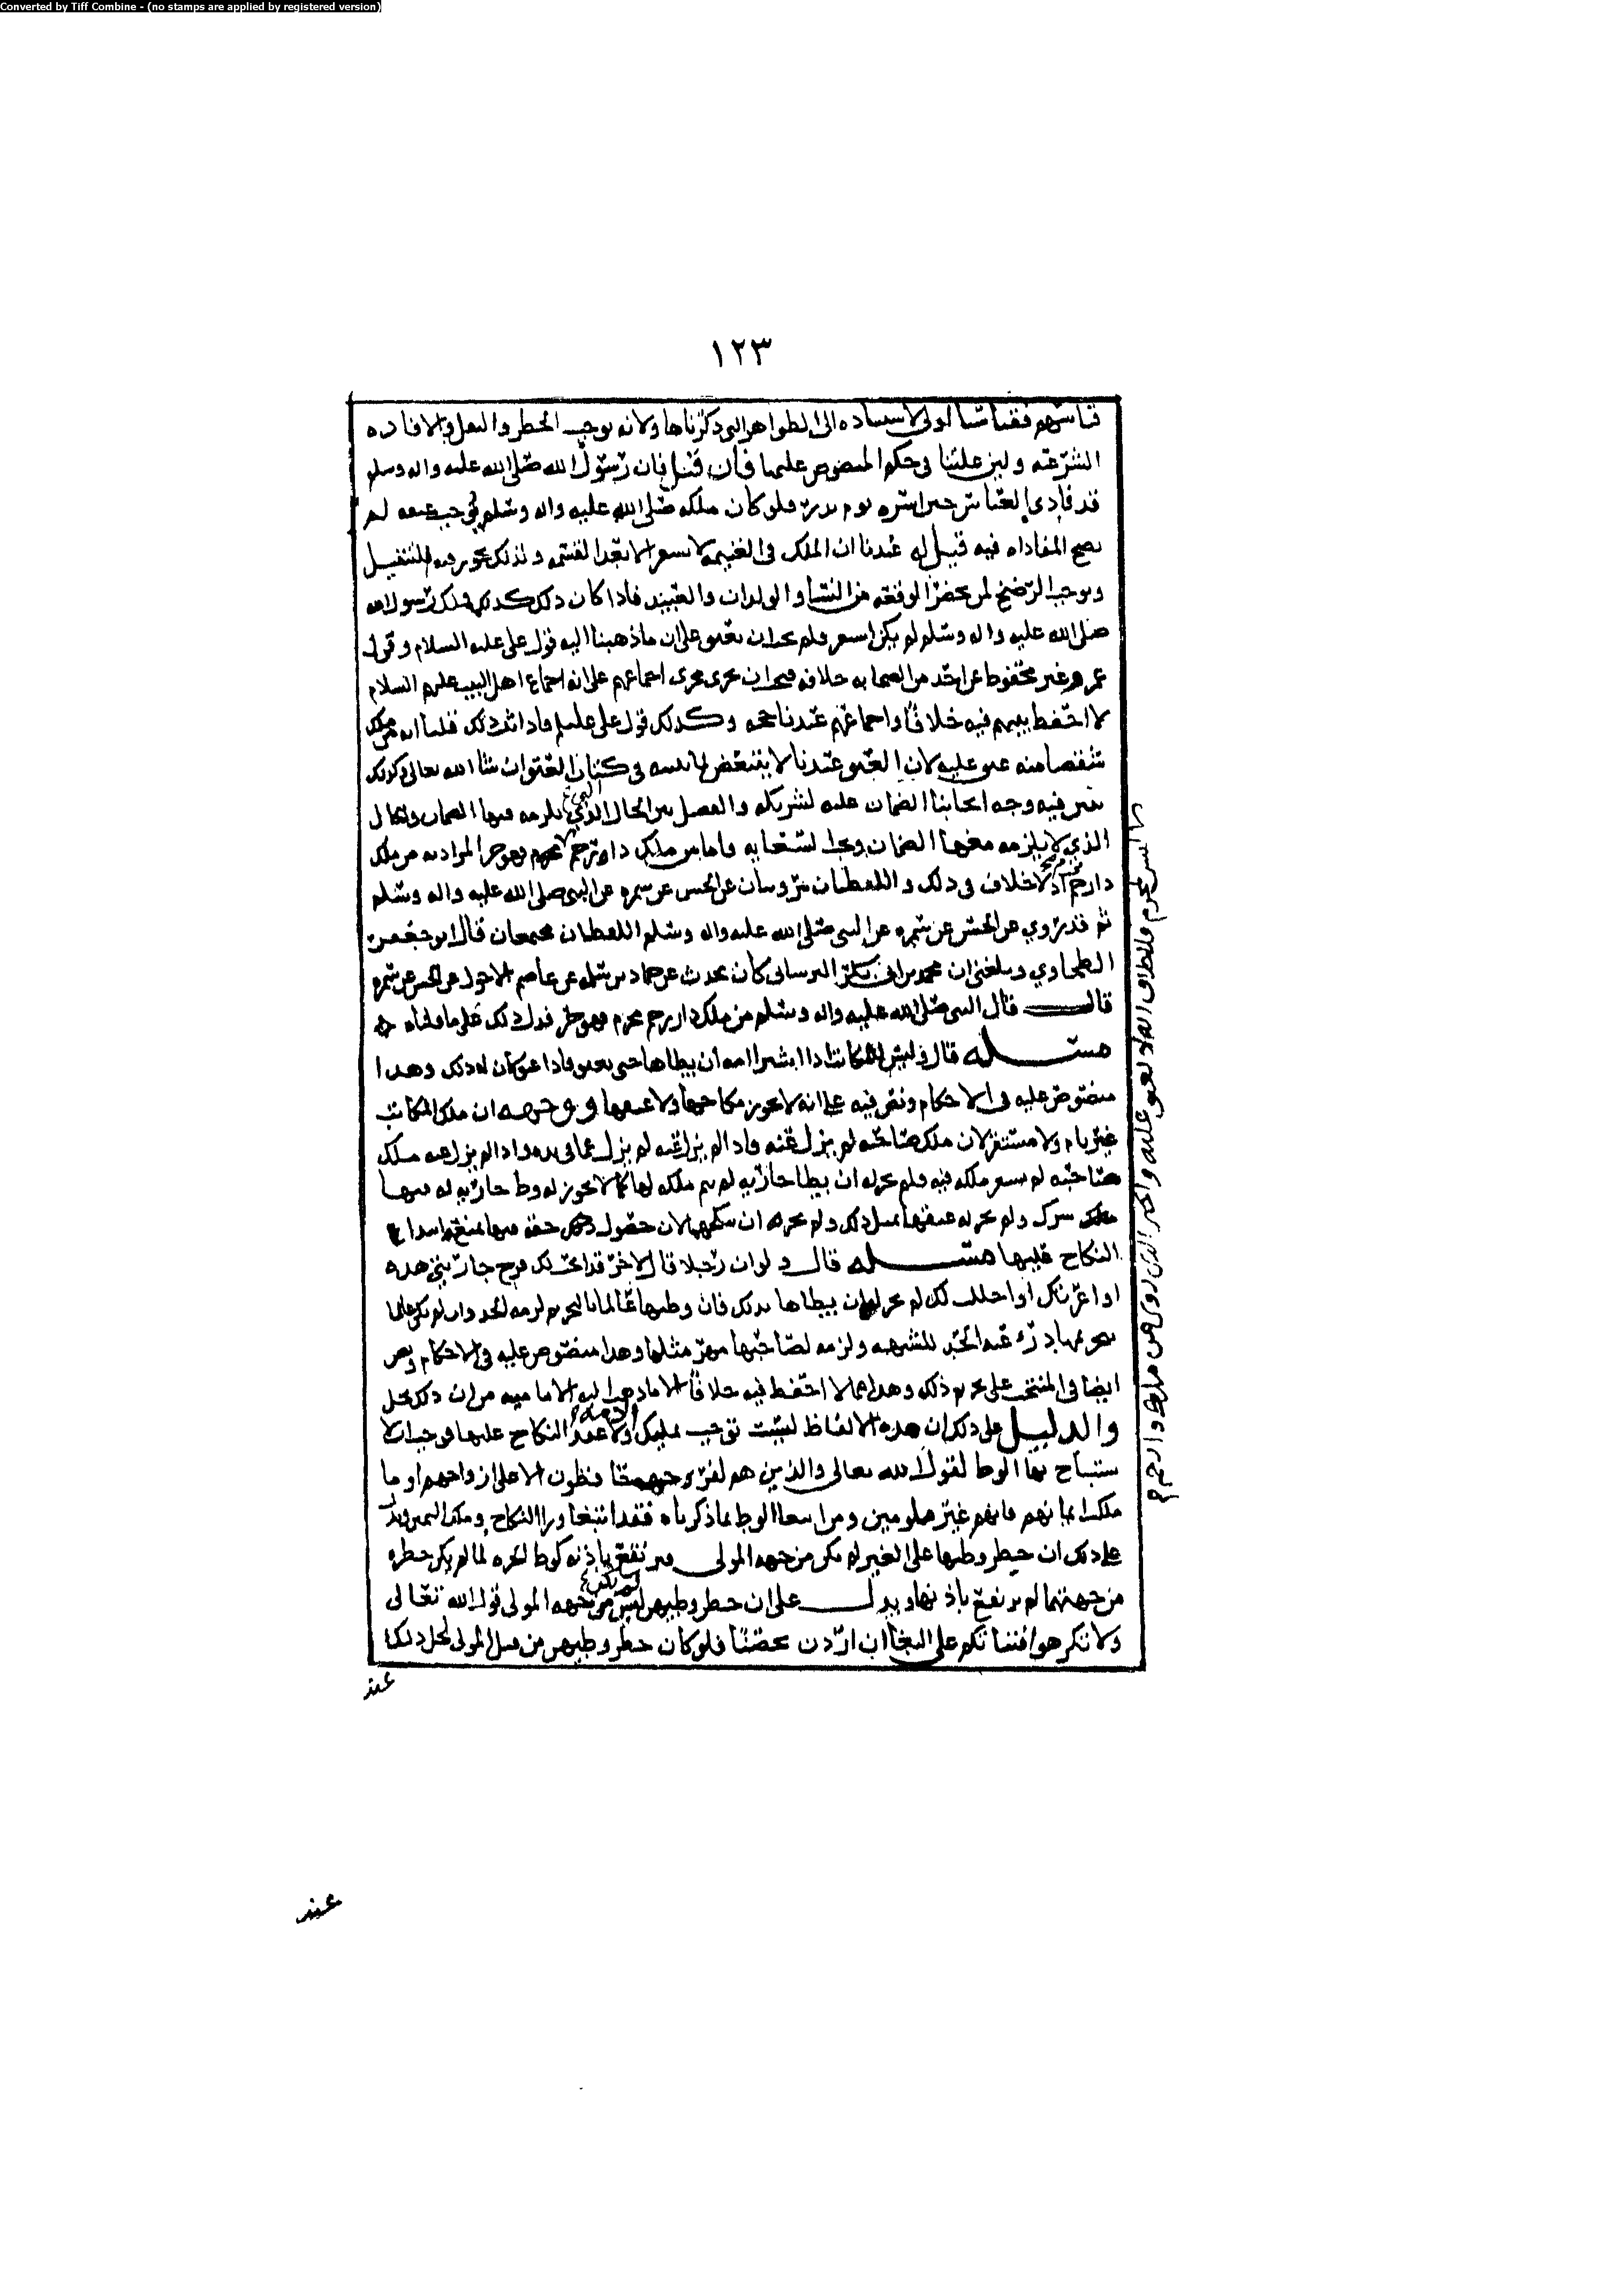 Converted by Tiff Combine - (no stamps are applied by registered version)
١٢٣
قياسهم فقياسنا اولى لاستناده الى الظواهر التي ذكرناها ولانه يوجب الحظر والنقل والافاده
الشرعيه وليس علتنا في حكم المنصوص عليها فان قيل فان رسول الله صلى الله عليه واله وسلم
قد فادى العباس حين اسره يوم بدر فلو كان ملكه صلى الله عليه واله وسلم يوجب عتقه لم
يصح المفاداه فيه قيل له عندنا ان الملك في الغنيمه لا يستقر الا بعد القسمه ولذلك يجوز فيه التنفيل
ويوجب الرضخ لمن يحضر الوقعه من النساء والولدان والعبيد فاذا كان ذلك كذلك فملك رسول الله
صلى الله عليه واله وسلم لم يكن استقر فلم يجب ان يعتق على ان ما ذهبنا اليه قول علي عليه السلام وقول
عمر وغير محفوظ عن احد من الصحابه خلافه فيجب ان يجري مجرى اجماعهم على انه اجماع اهل البيت عليهم السلام
لا احفظ بينهم فيه خلافا واجماعهم عندنا حجه وكذلك قول علي عليلم فاذا ثبت ذلك قلنا انه من ملك
شقصا منه عتق عليه لان العتق عندنا لا يتبعض لما نبينه في كتاب العتق ان شا الله تعالى وكذلك
نبين فيه وجه ايجابنا الضمان عليه لشريكه والفصل بين الحال التي يلزمه فيها الضمان والحال
الذي لا يلزمه معها الضمان ويجب استسعايه واما من ملك ذا رحم محرم فهو حر المراد به من ملك
ذا رحم اذ لا خلاف في ذلك واللفظتان مرويتان عن الحسن عن سمره عن النبي صلى الله عليه واله وسلم
ثم قد روي عن الحسن عن سمره عن النبي صلى الله عليه واله وسلم اللفظتان مجتمعان قال ابو جعفر
الطحاوي وبلغني ان محمد بن ابي بكر البرساني كان يحدث عن حماد بن سلمه عن عاصم الاحول عن الحسن عن سمره
قال قال النبي صلى الله عليه واله وسلم من ملك ذا رحم محرم فهو حر فدل ذلك على ما قلناه
مسئله قال وليس للمكاتب اذا اشترا امه ان يطاها حتى يعتق فاذا عتق كان له ذلك وهذا
منصوص عليه في الاحكام ونص فيه على انه لا يجوز نكاحها ولا عتقها ووجهه ان ملك المكاتب
غير تام ولا مستقر لان ملك صاحبه لم يزل عنه واذا لم يزل عنه لم يزل عما في يده واذا لم يزل عنه ملك
صاحبه لم يستقر ملكه فيه فلم يجز له ان يطا جاريه لم يتم ملكه لها كما لا يجوز له وطئ جاريه له فيها
شرك ولم يجز له عتقها لمثل ذلك ولم يجز له ان ينكحها لان حصول حقه فيها يمنع ابتداع
النكاح عليها مسئله قال ولو ان رجلا قال لاخر قد ابحت لك فرج جاريتي هذه
او اعرتك او احللت لك لم يجز له ان يطاها بذلك فان وطئها عالما بالتحريم لزمه الحد وان لم يكن عالما
بتحريمها درئ عنه الحد للشبهه ولزمه لصاحبها مهر مثلها وهذا منصوص عليه في الاحكام ونص
ايضا في المنتخب على تحريم ذلك وهذا مما لا احفظ فيه خلافا الا ما ذهب اليه الاماميه من ان ذلك يحل
والدليل على ذلك ان هذه الالفاظ ليست توجب تمليك الامه ولا عقد النكاح عليها فوجب الا
يستباح بها الوطا لقول الله تعالى والذين هم لفروجهم حافظون الا على ازواجهم او ما
ملكت ايمانهم فانهم غير ملومين ومن ابتغا الوطئ بما ذكرناه فقد ابتغا ورا النكاح وملك اليمين ويدل
على ذلك ان حظر وطئها على الغير لم يكن من جهه المولى فيرتفع باذنه كوطئ الحره لما لم يكن حظره
من جهتها لم يرتفع باذنها ويدل على ان حظر وطيهن ليس من جهه المولى قول الله تعالى
ولا تكرهوا فتياتكم على البغا ان اردن تحصنا فلو كان حظر وطيهن من قبل المولى لحل ذلك
عند
عند